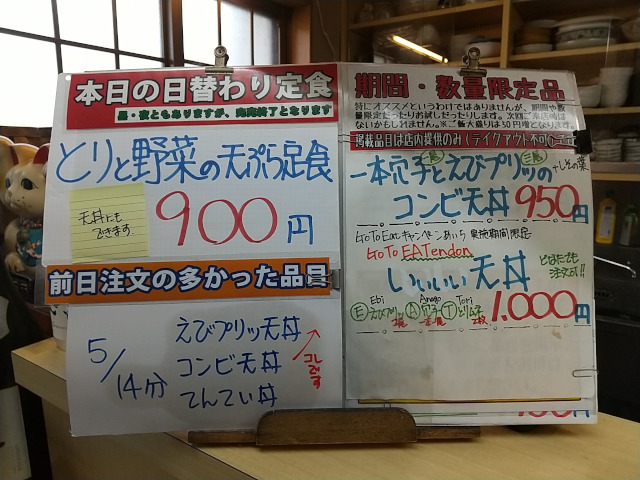 本日の日替わり定食
昼・夜ともありますが、完売終了となります
とりと野菜の天ぷら定食
天丼にも
できます
900円
前日注文の多かった品目
5/14分
えびプリッ天丼
コンビ天丼
てんてい丼
コレです
期間・数量限定品
特にオススメというわけではありませんが、期間や数
量限定だったりお試しだったりします。次回ご来店時は
ないかもしれません。※ご飯大盛りは50円増となります。
掲載品目は店内提供のみ(テイクアウト不可)
一本穴子とえびプリッの
二尾
+しその葉
コンビ天丼 950円
GoToEatキャンペーンあいち 実施期間限定
GoTo EATendon
いいいい天丼
どなたでも
注文可!!
Ebi Anago Tori
Eえびプリッ 2尾 A穴子 一本 Tとりムネ 2枚 1,000円